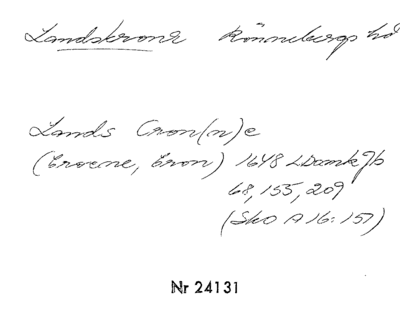 Landskrona Rönnebergs hd
Lands Cron(n)e
(Croene, Cron) 1648 LDomkJb
68, 155, 209
(SkO A 16: 157)
Nr 24131